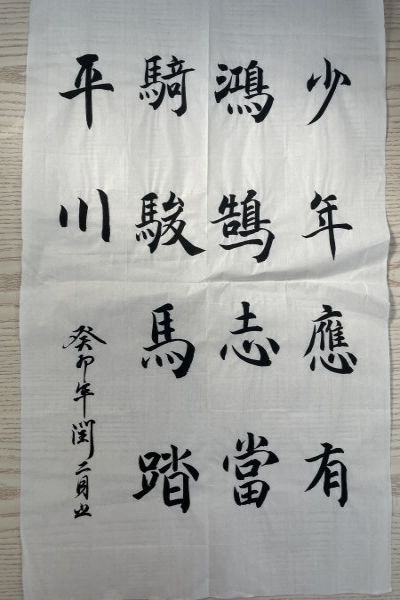 少年應有
鴻鵠志當
騎駿馬踏
平川
癸卯年閏二月